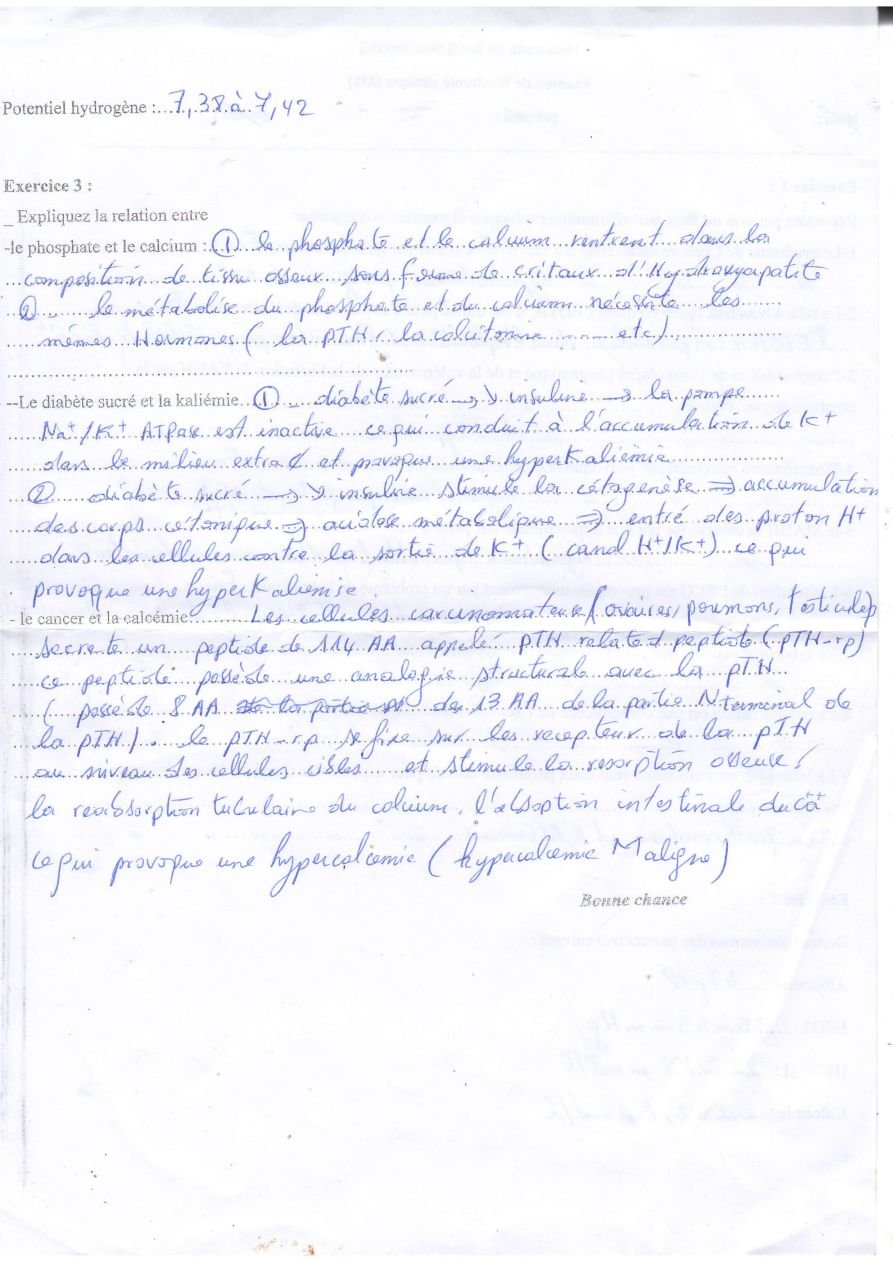 Potentiel hydrogène :...7,38 à 7,42
Exercice 3 :
_ Expliquez la relation entre
-le phosphate et le calcium : ① le phosphate et le calcium rentrent dans la
composition de tissu osseux sous forme de critaux d'Hydroxyapatite
② .. le métabolise du phosphate et du calcium nécessite les
mêmes Hormones ( la PTH, la calcitonine ..... etc)
--Le diabète sucré et la kaliémie.. ① .. diabète sucré → ↘ insuline → la pompe
Na+/K+ ATPase est inactive ce qui conduit à l'accumulation de K+
dans le milieu extra ¢ et provoque une hyperKaliémie
② diabète sucré → ↘ insuline stimule la cétogenèse ⇒ accumulation
des corps cétonique ⇒ acidose métabolique ⇒ entré des proton H+
dans les cellules contre la sortie de K+ ( canal H+/K+) ce qui
provoque une hyperKaliemie
- le cancer et la calcémie:... Les cellules carcinomateuse (ovaires, poumons, testicule)
secrete un peptide de 114 AA appelé PTH related peptide (PTH-rp)
ce peptide possède une analogie structurale avec la PTH
( possède 8 AA des 13 AA de la partie N terminal de
la PTH ). le PTH-rp se fixe sur les recepteur de la PTH
au niveau des cellules cibles et stimule la resorption osseuse,
la reabsorption tubulaire du calcium, l'absoption intestinale du ca++
ce qui provoque une hypercalcemie ( hypercalcemie Maligne)
Bonne chance